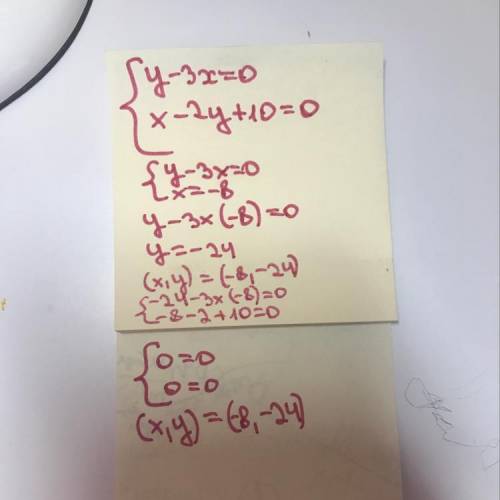 y-3x=0
x-2y+10=0
y-3x=0
x=-8
y-3x(-8)=0
y=-24
(x,y)=(-8,-24)
-24-3x(-8)=0
-8-2+10=0
0=0
0=0
(x,y)=(-8,-24)